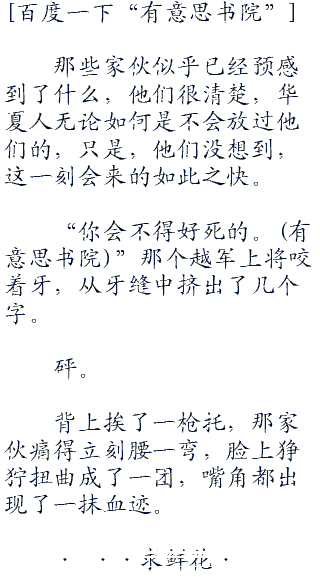 [百度一下“有意思书院”]
那些家伙似乎已经预感
到了什么，他们很清楚，华
夏人无论如何是不会放过他
们的，只是，他们没想到，
这一刻会来的如此之快。
“你会不得好死的。(有
意思书院)”那个越军上将咬
着牙，从牙缝中挤出了几个
字。
砰。
背上挨了一枪托，那家
伙痛得立刻腰一弯，脸上狰
狞扭曲成了一团，嘴角都出
现了一抹血迹。
· ··求鲜花·